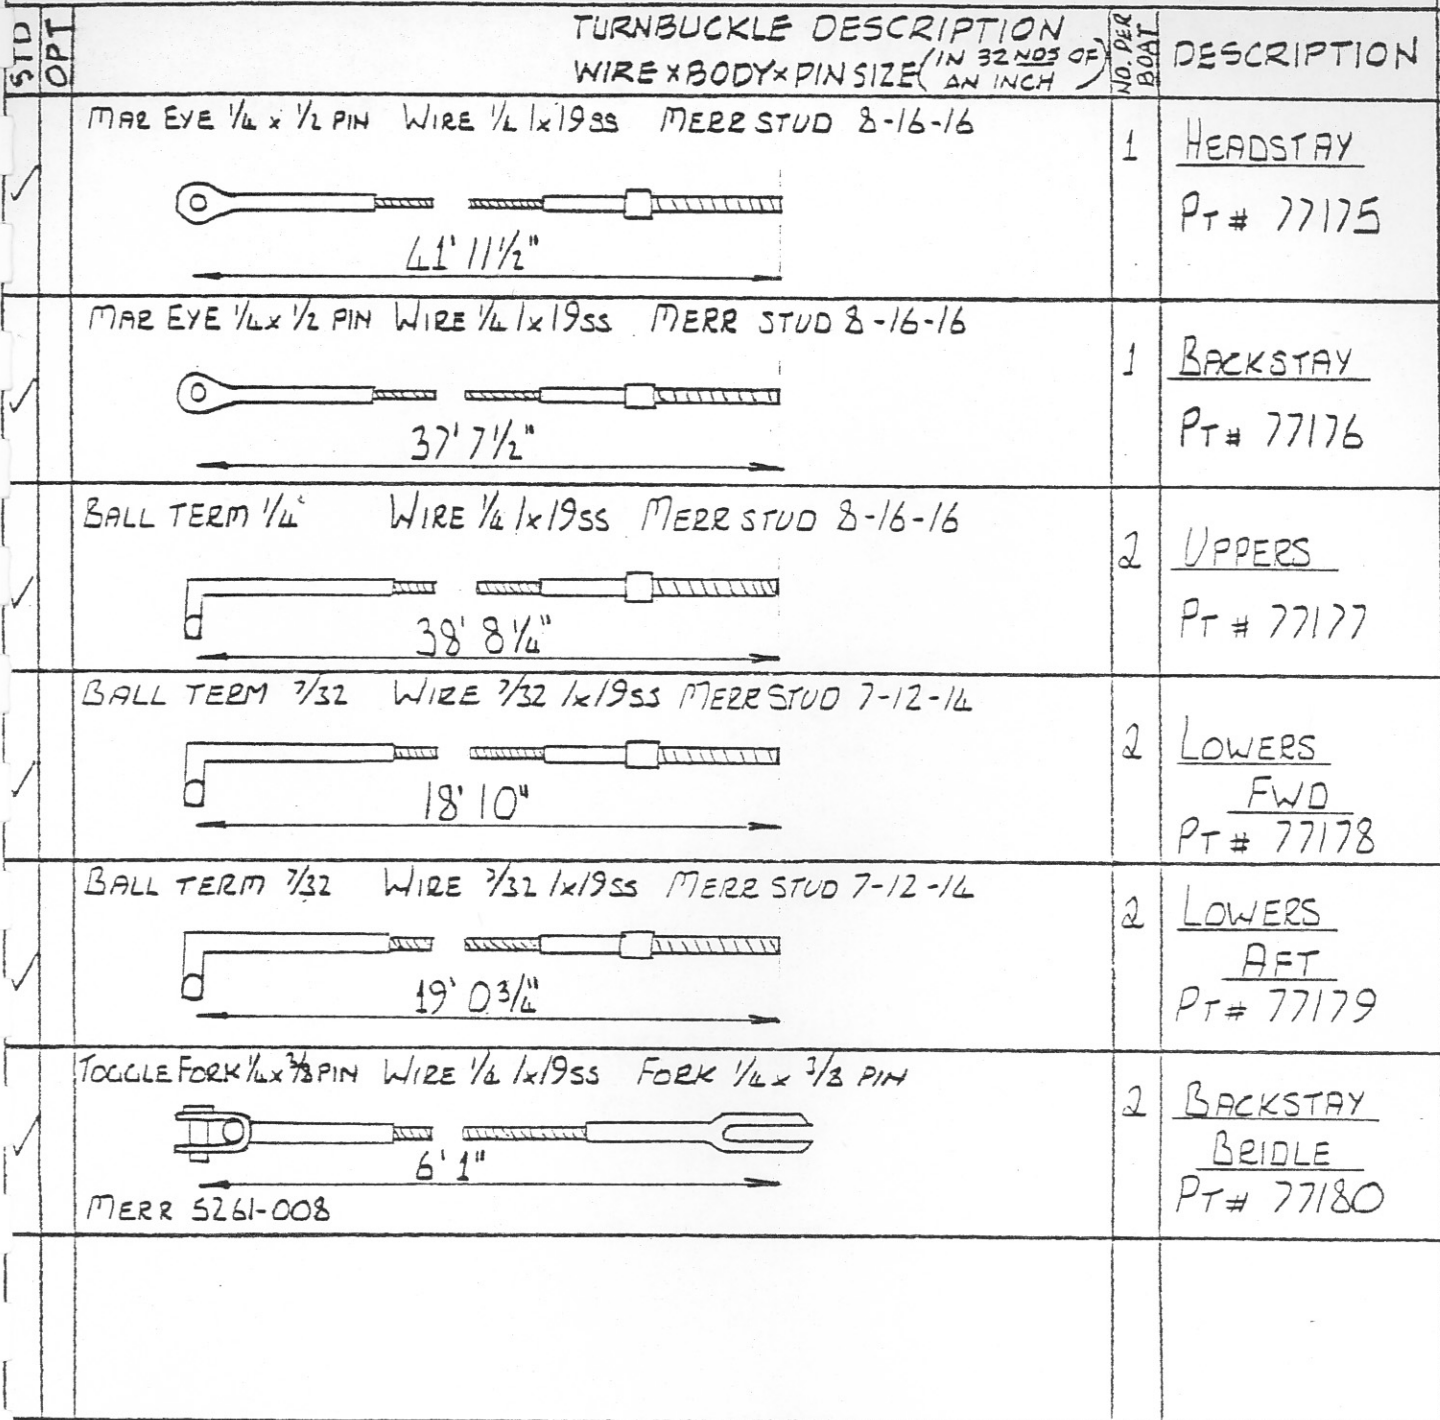 STD
OPT
TURNBUCKLE DESCRIPTION
WIRE x BODY x PIN SIZE (IN 32 NDS OF AN INCH)
NO. PER BOAT
DESCRIPTION
MAR EYE 1/4 x 1/2 PIN WIRE 1/4 1x19 SS MERR STUD 8-16-16
41' 11 1/2"
1
HEADSTAY
PT # 77175
MAR EYE 1/4 x 1/2 PIN WIRE 1/4 1x19 SS MERR STUD 8-16-16
37' 7 1/2"
1
BACKSTAY
PT # 77176
BALL TERM 1/4" WIRE 1/4 1x19 SS MERR STUD 8-16-16
38' 8 1/4"
2
UPPERS
PT # 77177
BALL TERM 7/32 WIRE 7/32 1x19 SS MERR STUD 7-12-14
18' 10"
2
LOWERS
FWD
PT # 77178
BALL TERM 7/32 WIRE 7/32 1x19 SS MERR STUD 7-12-14
19' 0 3/4"
2
LOWERS
AFT
PT # 77179
TOGGLE FORK 1/4 x 3/8 PIN WIRE 1/4 1x19 SS FORK 1/4 x 3/8 PIN
6' 1"
MERR 5261-008
2
BACKSTAY
BRIDLE
PT # 77180